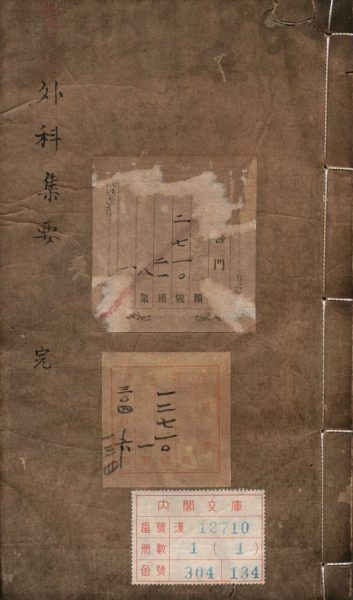 外科集要 完
門
二七一〇
二一
八
一
架函號順
一二七一〇
一
三〇四
六
一三四
內閣文庫
番號 漢 12710
冊數 1 ( 1 )
函號 304 134